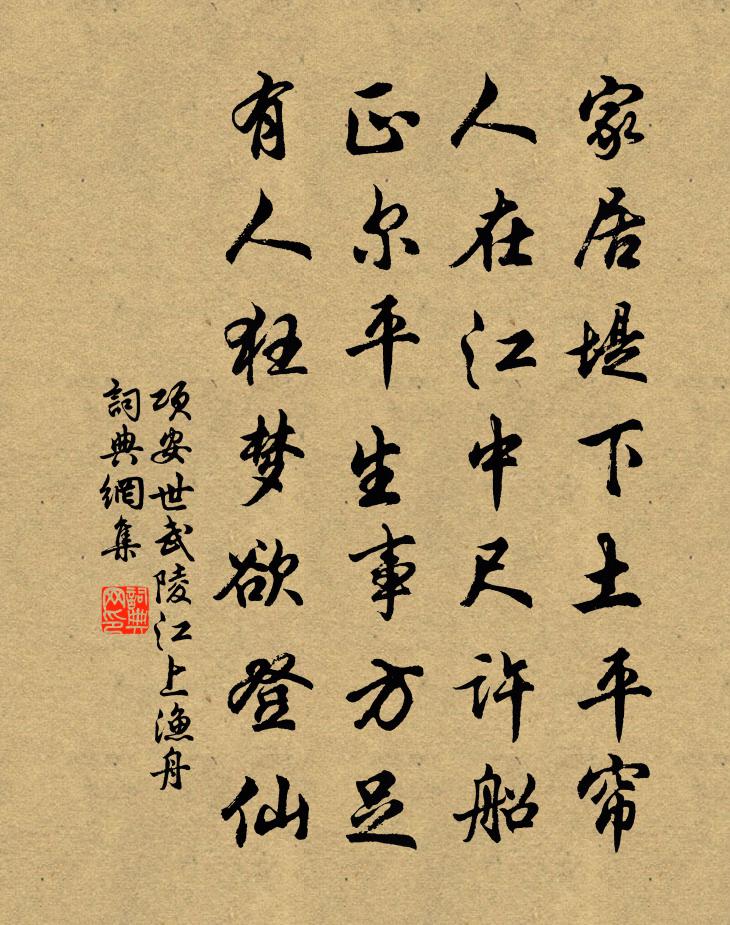 家居堤下土平帘
人在江中尺许船
正尔平生事方足
有人狂梦欲登仙
項安世武陵江上漁舟
詞典網集
詞典网印